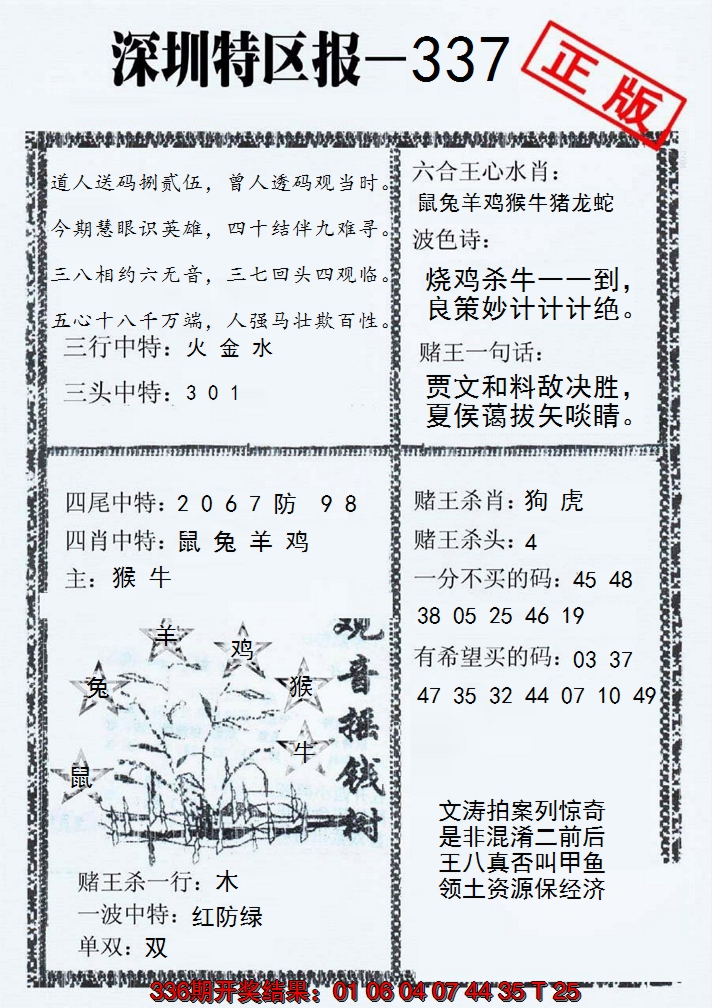 深圳特区报—337
正版
道人送码捌贰伍，曾人透码观当时。
今期慧眼识英雄，四十结伴九难寻。
三八相约六无音，三七回头四观临。
五心十八千万端，人强马壮欺百性。
三行中特：火 金 水
三头中特：3 0 1
六合王心水肖：
鼠兔羊鸡猴牛猪龙蛇
波色诗：
烧鸡杀牛一一到，
良策妙计计计绝。
赌王一句话：
贾文和料敌决胜，
夏侯蔼拔矢啖睛。
四尾中特：2 0 6 7 防 9 8
四肖中特：鼠 兔 羊 鸡
主：猴 牛
羊
鸡
兔
猴
牛
鼠
观音摇钱树
赌王杀一行：木
一波中特：红防绿
单双：双
赌王杀肖：狗 虎
赌王杀头：4
一分不买的码：45 48
38 05 25 46 19
有希望买的码：03 37
47 35 32 44 07 10 49
文涛拍案列惊奇
是非混淆二前后
王八真否叫甲鱼
领土资源保经济
336期开奖结果：01 06 04 07 44 35 T 25